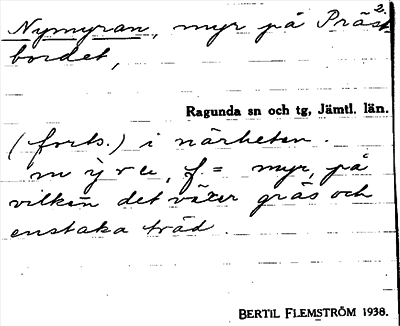 Nymyran, myr på Präst-
bordet,
2.
Ragunda sn och tg, Jämtl. län.
(forts.) i närheten.
mỳre, f = myr, på
vilken det växer gräs och
enstaka träd.
BERTIL FLEMSTRÖM 1938.